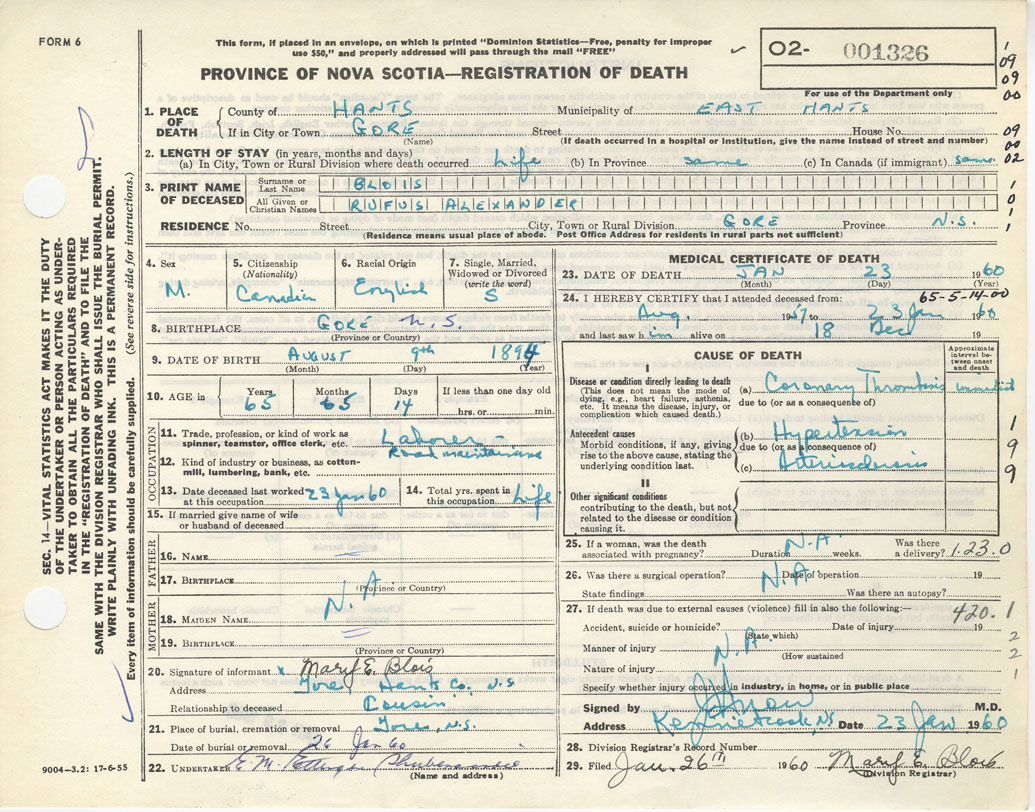 FORM 6
This form, if placed in an envelope, on which is printed "Dominion Statistics—Free, penalty for improper
use $50," and properly addressed will pass through the mail "FREE"
O2- 001326
For use of the Department only
PROVINCE OF NOVA SCOTIA—REGISTRATION OF DEATH
1. PLACE OF DEATH
County of HANTS Municipality of EAST HANTS
If in City or Town GORE Street House No.
(Name) (If death occurred in a hospital or institution, give the name instead of street and number)
2. LENGTH OF STAY (in years, months and days)
(a) In City, Town or Rural Division where death occurred Life (b) In Province same (c) In Canada (if immigrant) same
3. PRINT NAME OF DECEASED
Surname or Last Name BLOIS
All Given or Christian Names RUFUS ALEXANDER
RESIDENCE No. Street City, Town or Rural Division GORE Province N.S.
(Residence means usual place of abode. Post Office Address for residents in rural parts not sufficient)
4. Sex M.
5. Citizenship (Nationality) Canadian
6. Racial Origin English
7. Single, Married, Widowed or Divorced (write the word) S
8. BIRTHPLACE GORE N.S.
(Province or County)
9. DATE OF BIRTH AUGUST 9th 1894
(Month) (Day) (Year)
10. AGE in Years 65 Months 5 Days 14 If less than one day old hrs. or min.
OCCUPATION
11. Trade, profession, or kind of work as spinner, teamster, office clerk, etc. Laborer -
Road maintenance
12. Kind of industry or business, as cotton-mill, lumbering, bank, etc.
13. Date deceased last worked at this occupation 23 Jan 60
14. Total yrs. spent in this occupation Life
15. If married give name of wife or husband of deceased
FATHER
16. NAME
17. BIRTHPLACE
(Province or County)
N. A
MOTHER
18. MAIDEN NAME
19. BIRTHPLACE
(Province or County)
20. Signature of informant x Mary E. Blois
Address Gore Hants Co, N.S
Relationship to deceased Cousin
21. Place of burial, cremation or removal Gore, N.S.
Date of burial or removal 26 Jan 60
22. UNDERTAKER E. M.
(Name and address)
MEDICAL CERTIFICATE OF DEATH
23. DATE OF DEATH JAN 23 1960
(Month) (Day) (Year)
65-5-14-00
24. I HEREBY CERTIFY that I attended deceased from:
Aug. 1957 to 23 Jan 1960
and last saw him alive on 18 Dec 19
CAUSE OF DEATH
Approximate interval between onset and death
I
Disease or condition directly leading to death
(This does not mean the mode of dying, e.g., heart failure, asthenia, etc. It means the disease, injury, or complication which caused death.)
(a) Coronary Thrombosis
due to (or as a consequence of)
Antecedent causes
Morbid conditions, if any, giving rise to the above cause, stating the underlying condition last.
(b) Hypertension
due to (or as a consequence of)
(c) Arteriosclerosis
II
Other significant conditions
contributing to the death, but not related to the disease or condition causing it.
25. If a woman, was the death associated with pregnancy? Duration N.A. weeks. Was there a delivery? 1.23.0
26. Was there a surgical operation? N.A Date of operation 19
State findings Was there an autopsy?
27. If death was due to external causes (violence) fill in also the following:— 420.1
Accident, suicide or homicide? Date of injury 19
(State which)
Manner of injury N.A.
(How sustained
Nature of injury
Specify whether injury occurred in industry, in home, or in public place
Signed by M.D.
Address Kennetcook, NS Date 23 Jan 1960
28. Division Registrar's Record Number
29. Filed Jan. 26TH 1960 Mary E. Blois
(Division Registrar)
SEC. 14—VITAL STATISTICS ACT MAKES IT THE DUTY
OF THE UNDERTAKER OR PERSON ACTING AS UNDER-
TAKER TO OBTAIN ALL THE PARTICULARS REQUIRED
IN THE "REGISTRATION OF DEATH" AND FILE THE
SAME WITH THE DIVISION REGISTRAR WHO SHALL ISSUE THE BURIAL PERMIT.
WRITE PLAINLY WITH UNFADING INK. THIS IS A PERMANENT RECORD.
Every item of information should be carefully supplied. (See reverse side for instructions.)
9004-3.2: 17-6-55
1
09
09
00
09
00
02
1
0
1
1
1
9
9
1
2
2
1